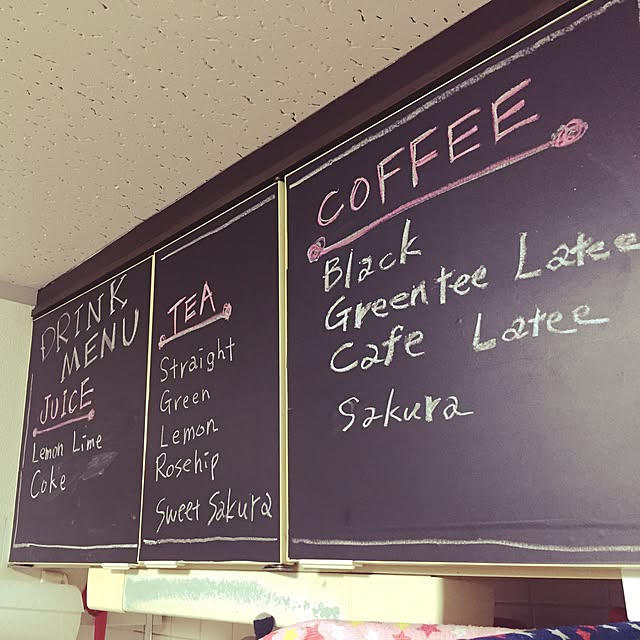 DRINK
MENU
JUICE
Lemon Lime
Coke
TEA
Straight
Green
Lemon
Rosehip
Sweet Sakura
COFFEE
Black
Greentee Latee
Cafe Latee
Sakura